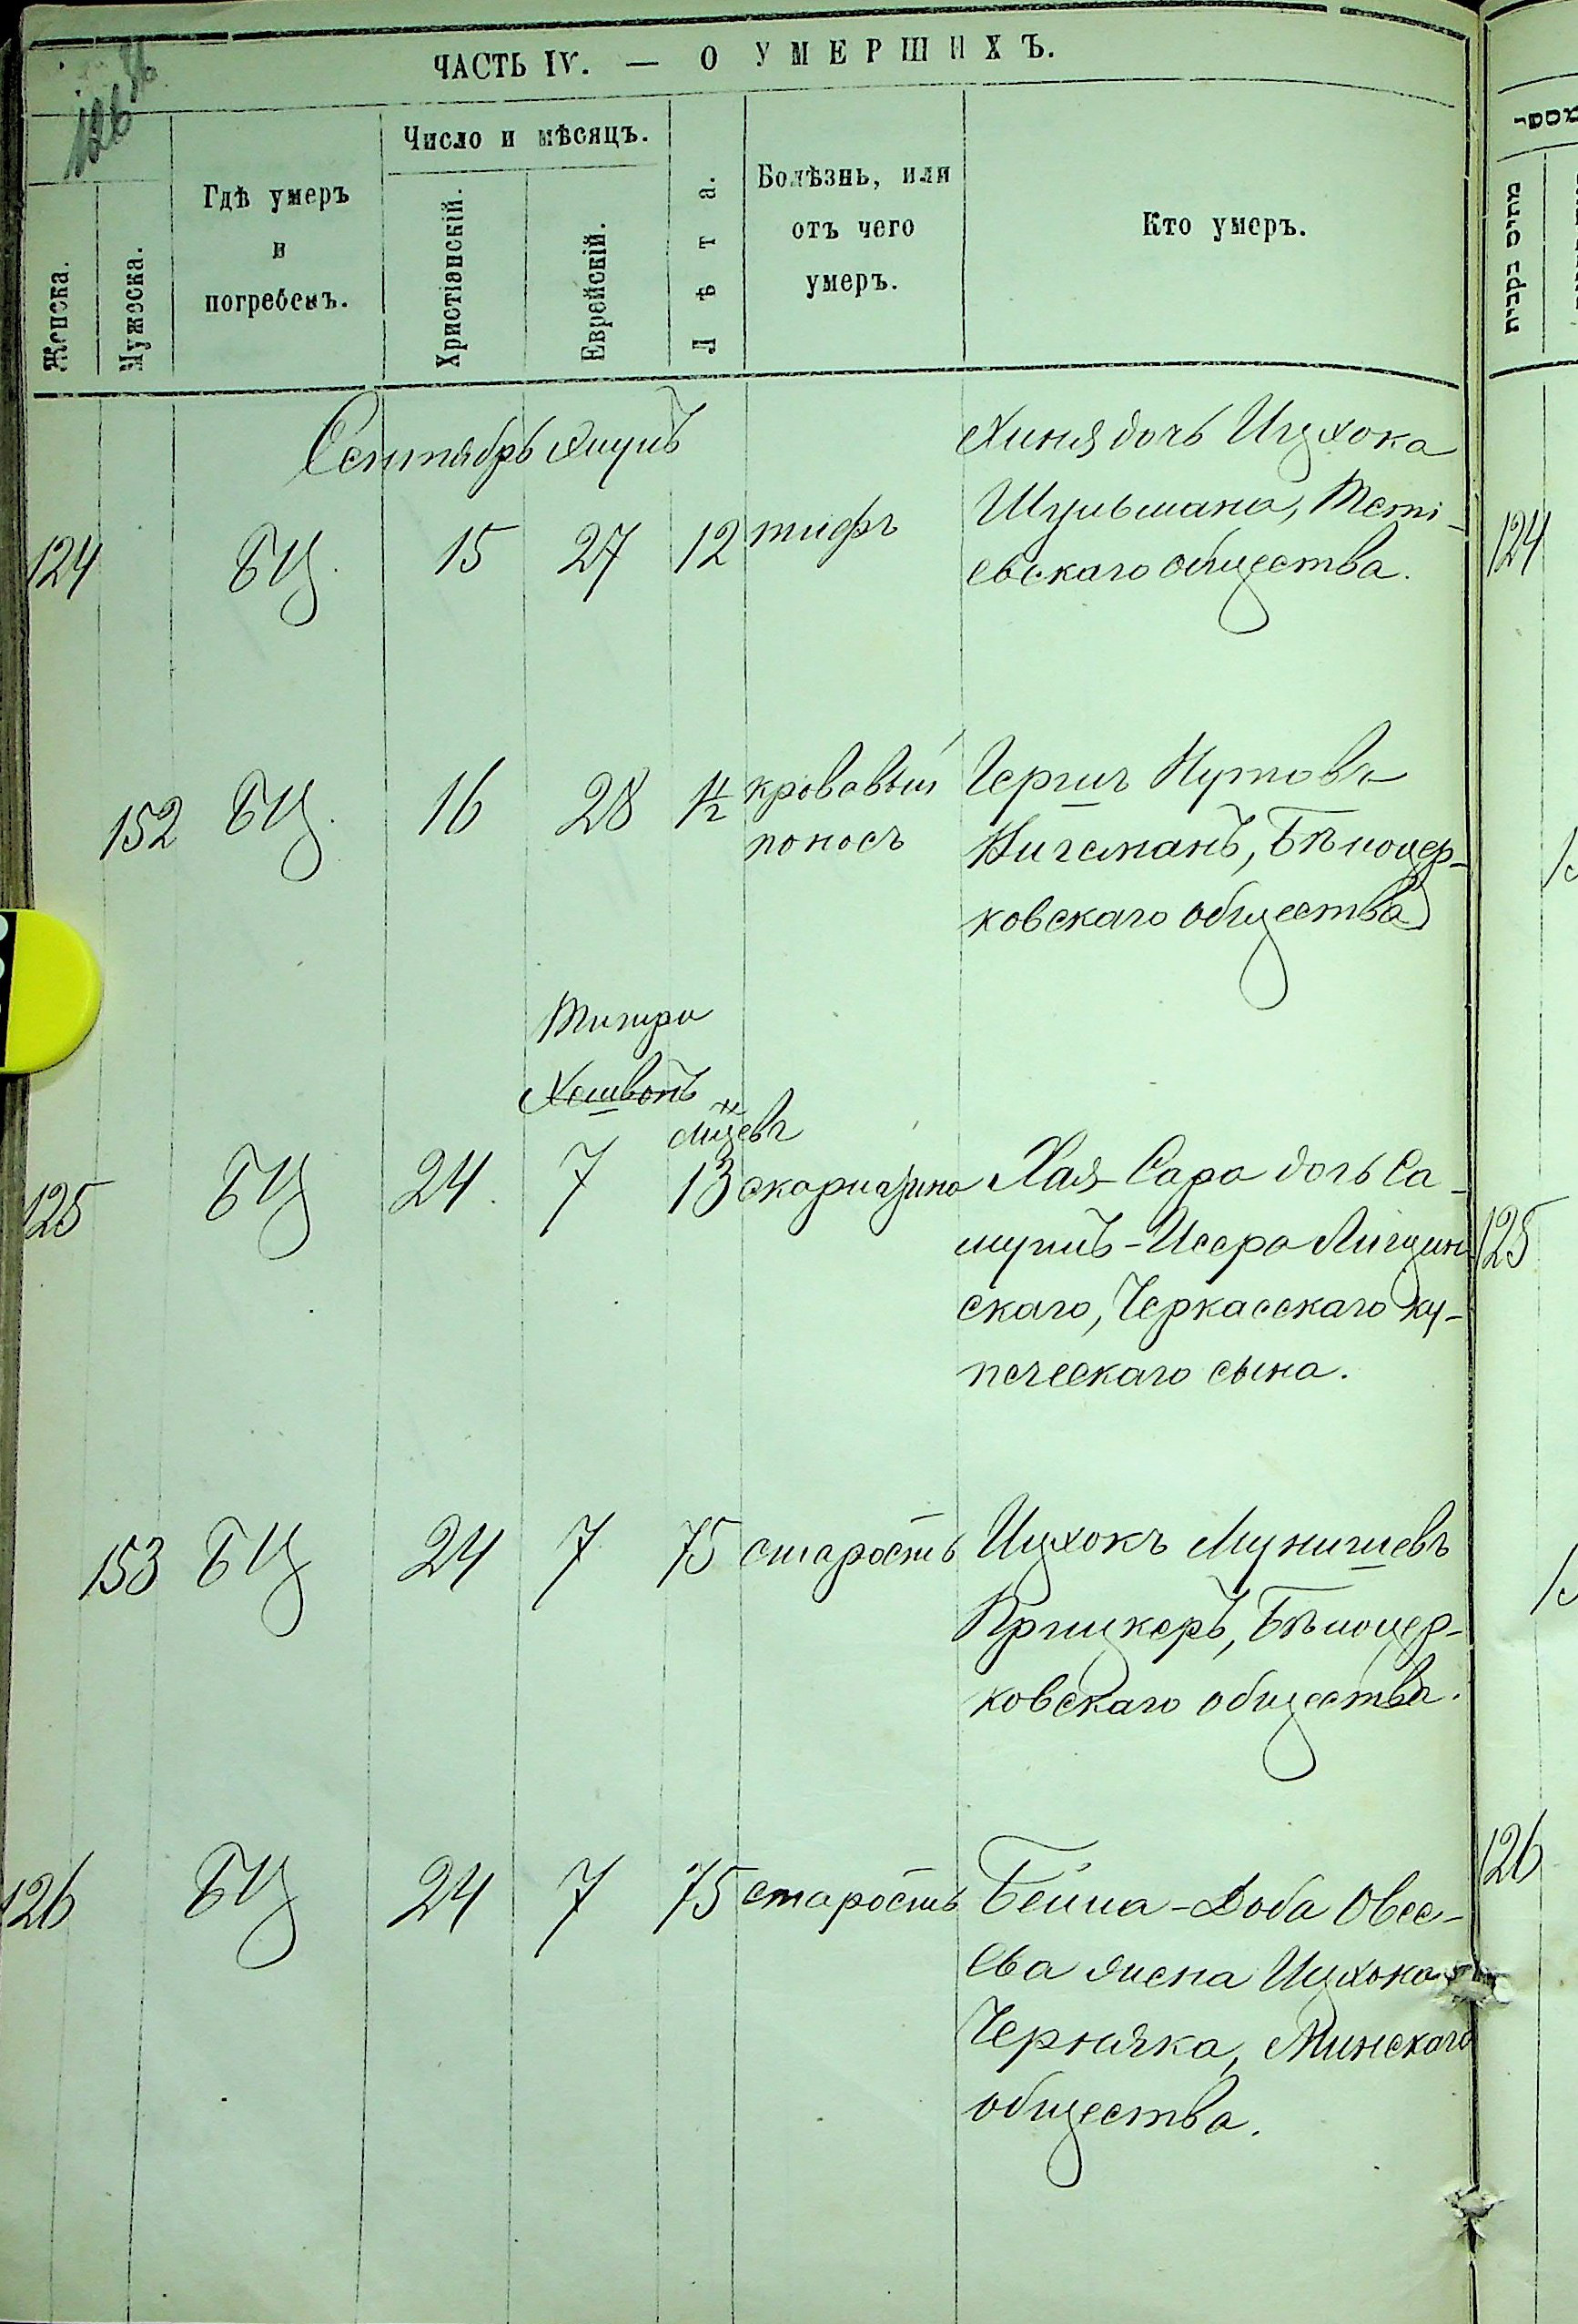 126
ЧАСТЬ IV. — О УМЕРШИХЪ.
Женска.
Мужеска.
Гдѣ умеръ
и
погребенъ.
Число и мѣсяцъ.
Христіанскій.
Еврейскій.
Лѣта.
Болѣзнь, или
отъ чего
умеръ.
Кто умеръ.
מתים נקבית
Сентябрь Элулъ
124 БЦ. 15 27 12 тифъ
Хиня дочь Ицхока
Шульмана, Тетi-
евскаго общества.
124
152 БЦ. 16 28 1½ кровавый
поносъ
Гершъ Нутовъ
Кигсманъ, Бѣлоцер-
ковскаго общества
Тишри
Хешвонъ
м-цевъ
125 БЦ 24. 7 13 скарлатина
Хая-Сара дочь Са-
муилъ-Исера
скаго, Черкасскаго ку-
печескаго сына.
125
153 БЦ 24 7 75 старость
Ицхокъ Мунишевъ
Прицкеръ, Бѣлоцер-
ковскаго общества.
126 БЦ 24 7 75 старость
Бейла-Доба Овсе-
ева жена Ицхока
Черняка, Минскаго
общества.
126